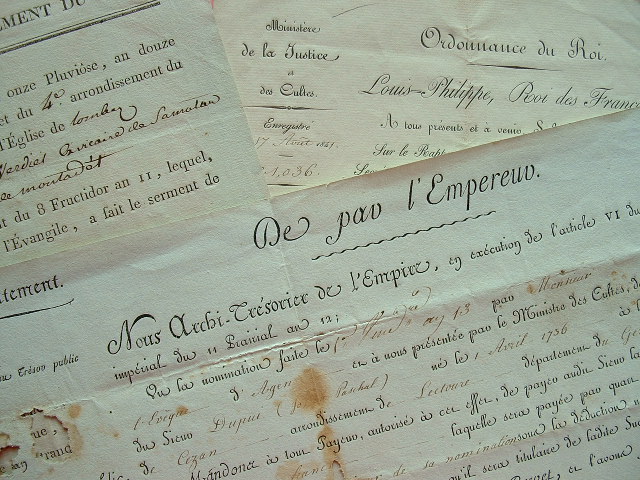 EMENT DU
onze Pluviôse, an douze
et du 4e. arrondissement du
l'Église de lombez
Verdier Vicaire de Samatan
de montadet
nt du 8 Fructidor an 11, lequel,
l'Évangile, a fait le serment de
Ministère
de la Justice
et
des Cultes.
Enregistré
17 Août 1841
1,036.
Ordonnance du Roi.
Louis-Philippe, Roi des Franç
A tous présents et à venir, Sal
Sur le Rapt
De par l'Empereur.
Nous Archi-Trésorier de l'Empire, en exécution de l'article VI du
impérial du 11 Prairial an 12;
Vu la nomination faite le 1er an 13 par Monsieur
l'Evêque d'Agen et à nous présentée par le Ministre des Cultes, d
du Sieur Dupuy (Paschal) né le 1 Avril 1736
de Cezan arrondissement de Lectoure département du Ge
Mandons à tout Payeur, autorisé à cet effet, de payer audit Sieur la
laquelle sera payée par quar
de sa nomination sous la déduction
qu'il sera titulaire de ladite Suc
tement.
au Trésor public